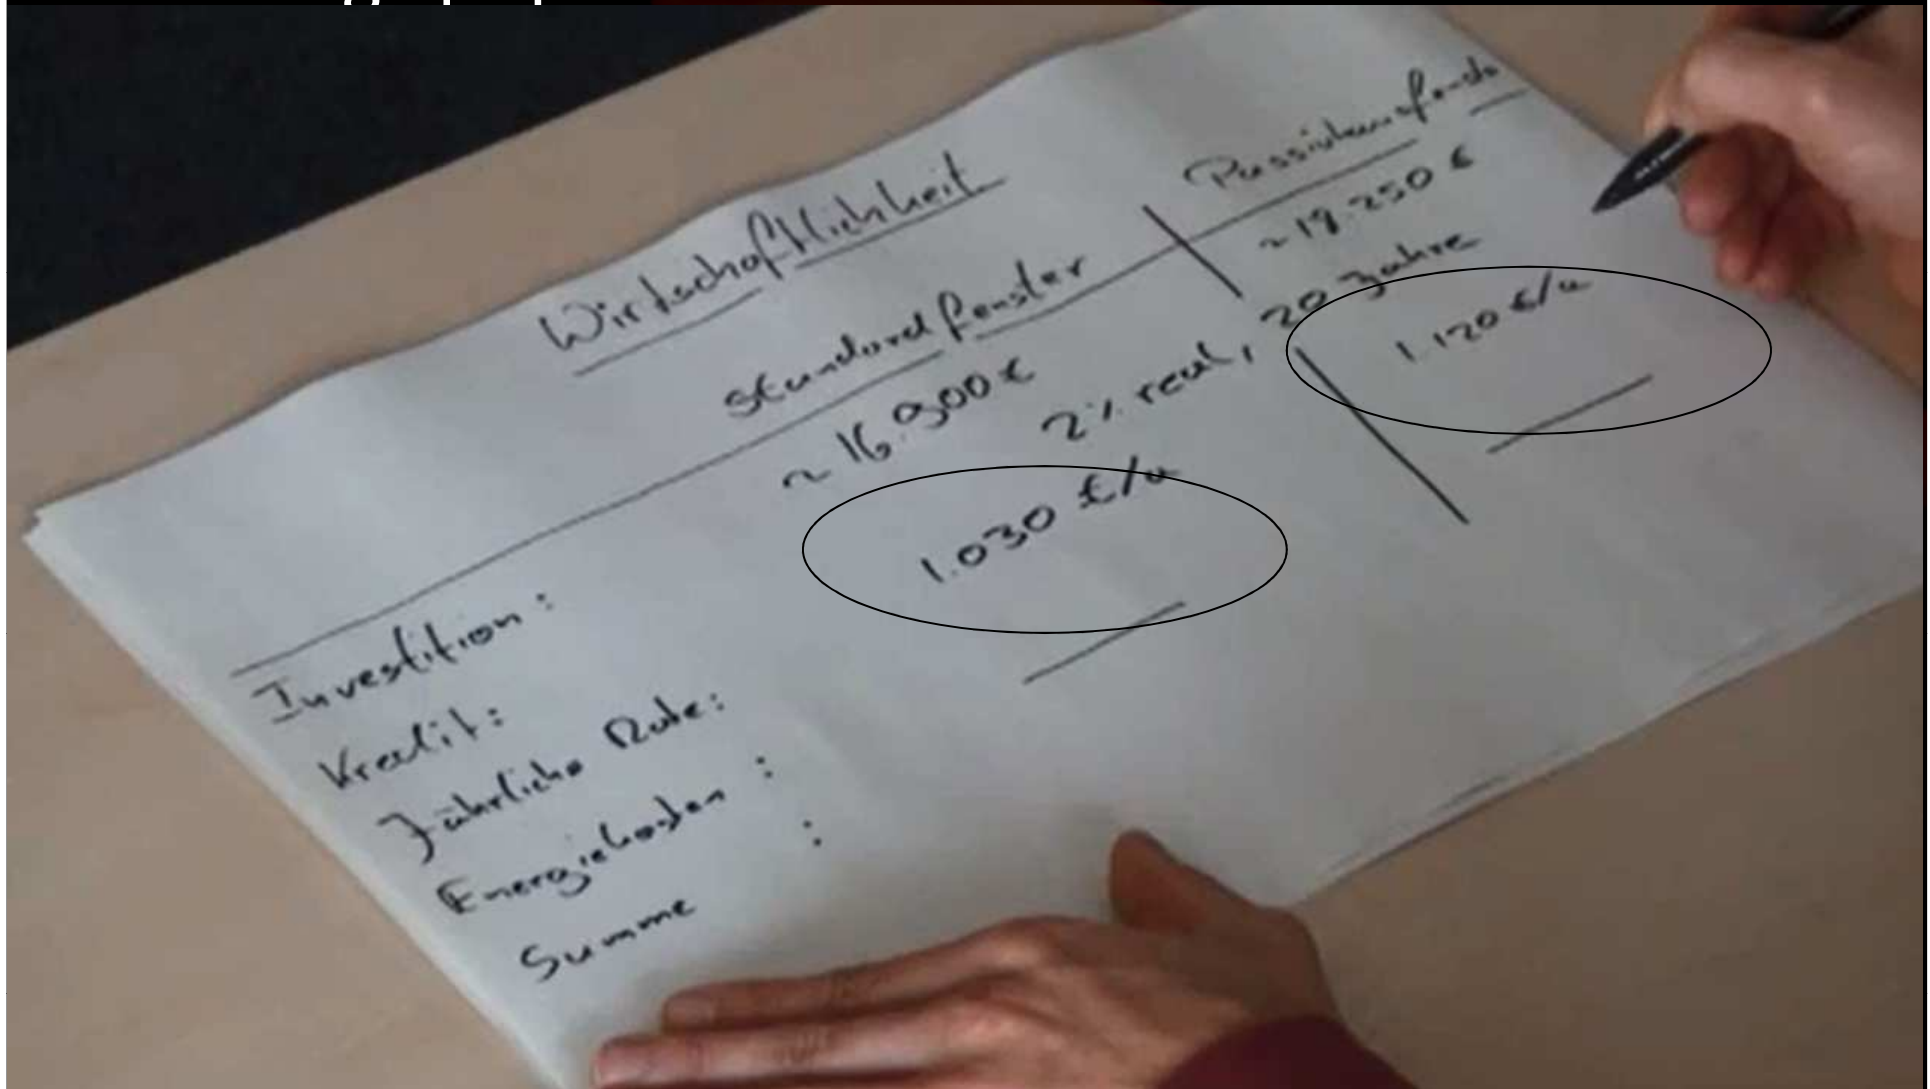 Wirtschaftlichkeit
Standardfenster Passivhausfenster
Investition: ~ 16.900 € ~ 18.250 €
Kredit: 2% real, 20 Jahre
Jährliche Rate: 1.030 €/a 1.120 €/a
Energiekosten :
Summe :